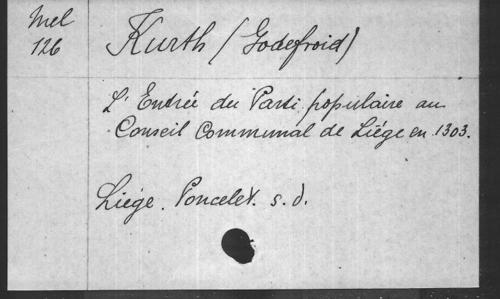 Mel
126
Kurth (Godefroid)
L'Entrée du Parti populaire au
Conseil Communal de Liége en 1303.
Liége. Poncelet. s.d.